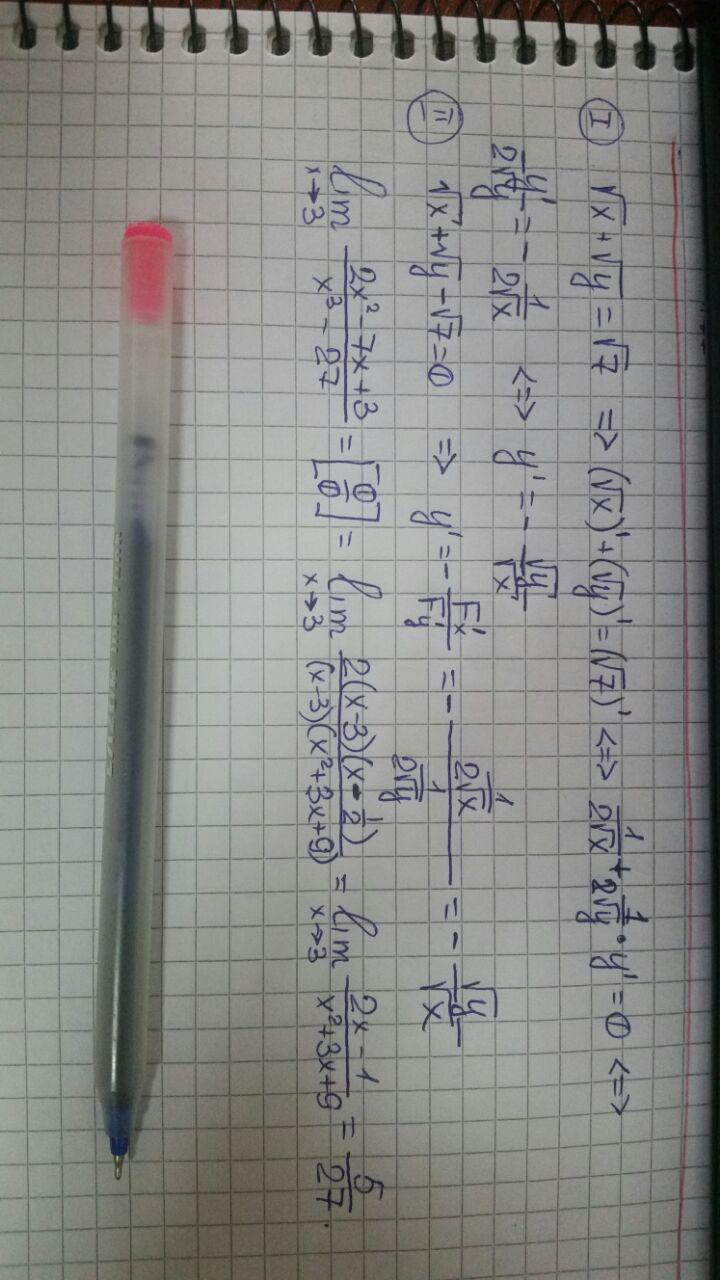 I √x + √y = √7 => (√x)' + (√y)' = (√7)' <=> 1/(2√x) + 1/(2√y) · y' = 0 <=>
y'/(2√y) = - 1/(2√x) <=> y' = - √y/√x
II √x + √y - √7 = 0 => y' = - F'x/F'y = - (1/(2√x))/(1/(2√y)) = - √y/√x
lim x→3 (2x² - 7x + 3)/(x³ - 27) = [0/0] = lim x→3 2(x-3)(x - 1/2)/((x-3)(x²+3x+9)) = lim x→3 (2x - 1)/(x²+3x+9) = 5/27.